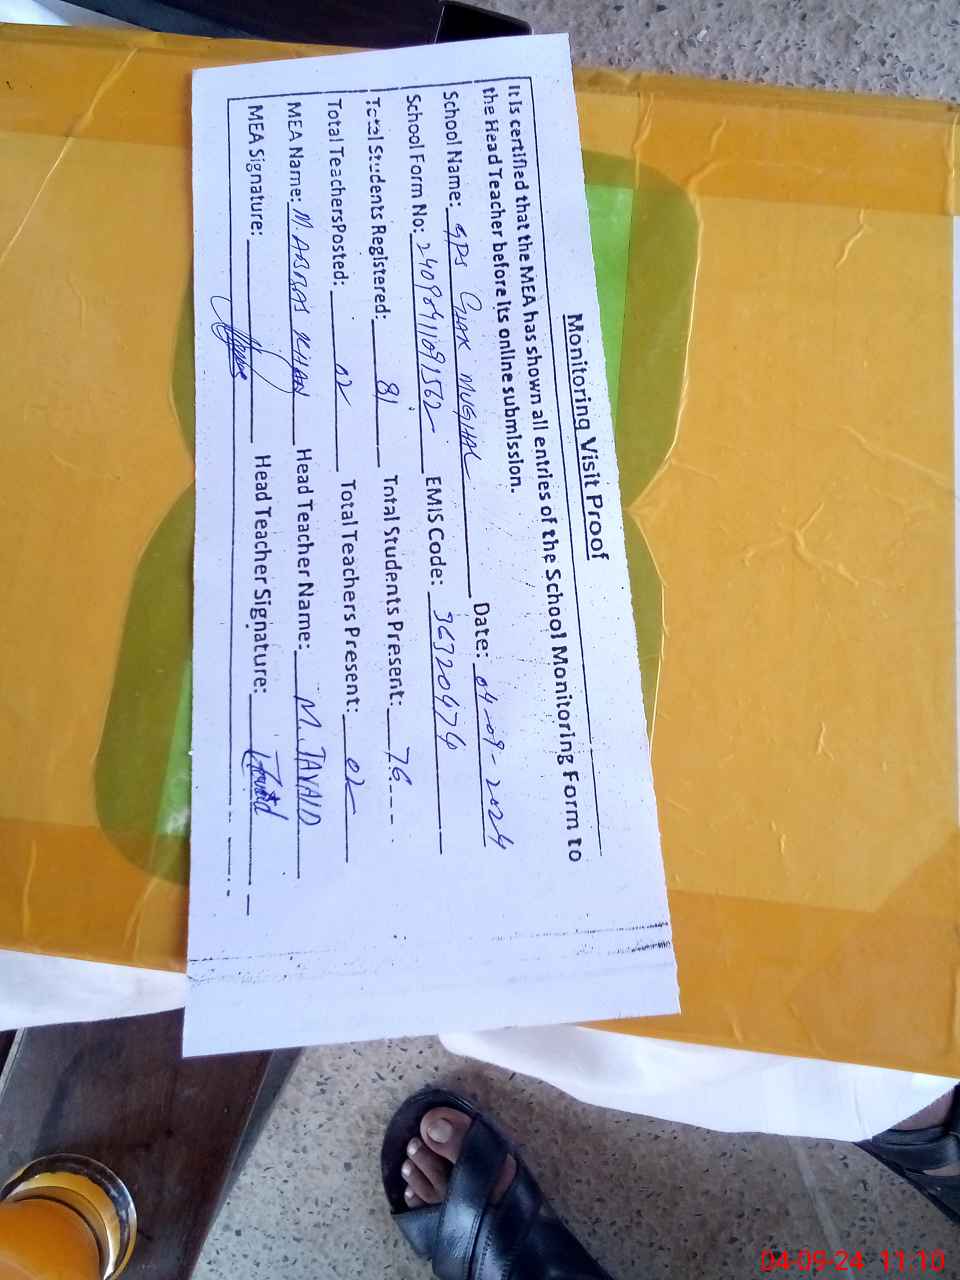 Monitoring Visit Proof
It is certified that the MEA has shown all entries of the School Monitoring Form to
the Head Teacher before its online submission.
School Name: GPS CHAK MUGHAL Date: 04-09-2024
School Form No: EMIS Code: 36320474
Total Students Registered: 81 Total Students Present: 76
Total TeachersPosted: 02 Total Teachers Present: 02
MEA Name: M. ABBAS KHAN Head Teacher Name: M. JAVAID
MEA Signature: Head Teacher Signature: Javaid
04-09-24 11:10